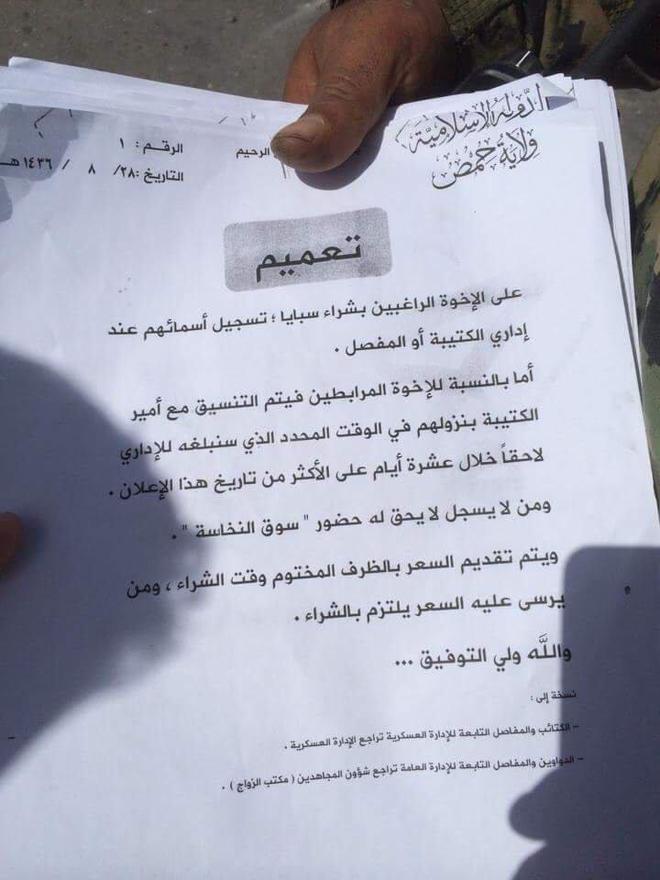 الدولة الإسلامية
ولاية حمص
الرحيم
الرقم : ١
التاريخ :٢٨/ ٨ / ١٤٣٦ هـ
تعميم
على الإخوة الراغبين بشراء سبايا ؛ تسجيل أسمائهم عند
إداري الكتيبة أو المفصل .
أما بالنسبة للإخوة المرابطين فيتم التنسيق مع أمير
الكتيبة بنزولهم في الوقت المحدد الذي سنبلغه للإداري
لاحقاً خلال عشرة أيام على الأكثر من تاريخ هذا الإعلان .
ومن لا يسجل لا يحق له حضور " سوق النخاسة " .
ويتم تقديم السعر بالظرف المختوم وقت الشراء ، ومن
يرسى عليه السعر يلتزم بالشراء .
والله ولي التوفيق ...
نسخة إلى :
- الكتائب والمفاصل التابعة للإدارة العسكرية تراجع الإدارة العسكرية .
- الدواوين والمفاصل التابعة للإدارة العامة تراجع شؤون المجاهدين ( مكتب الزواج ) .